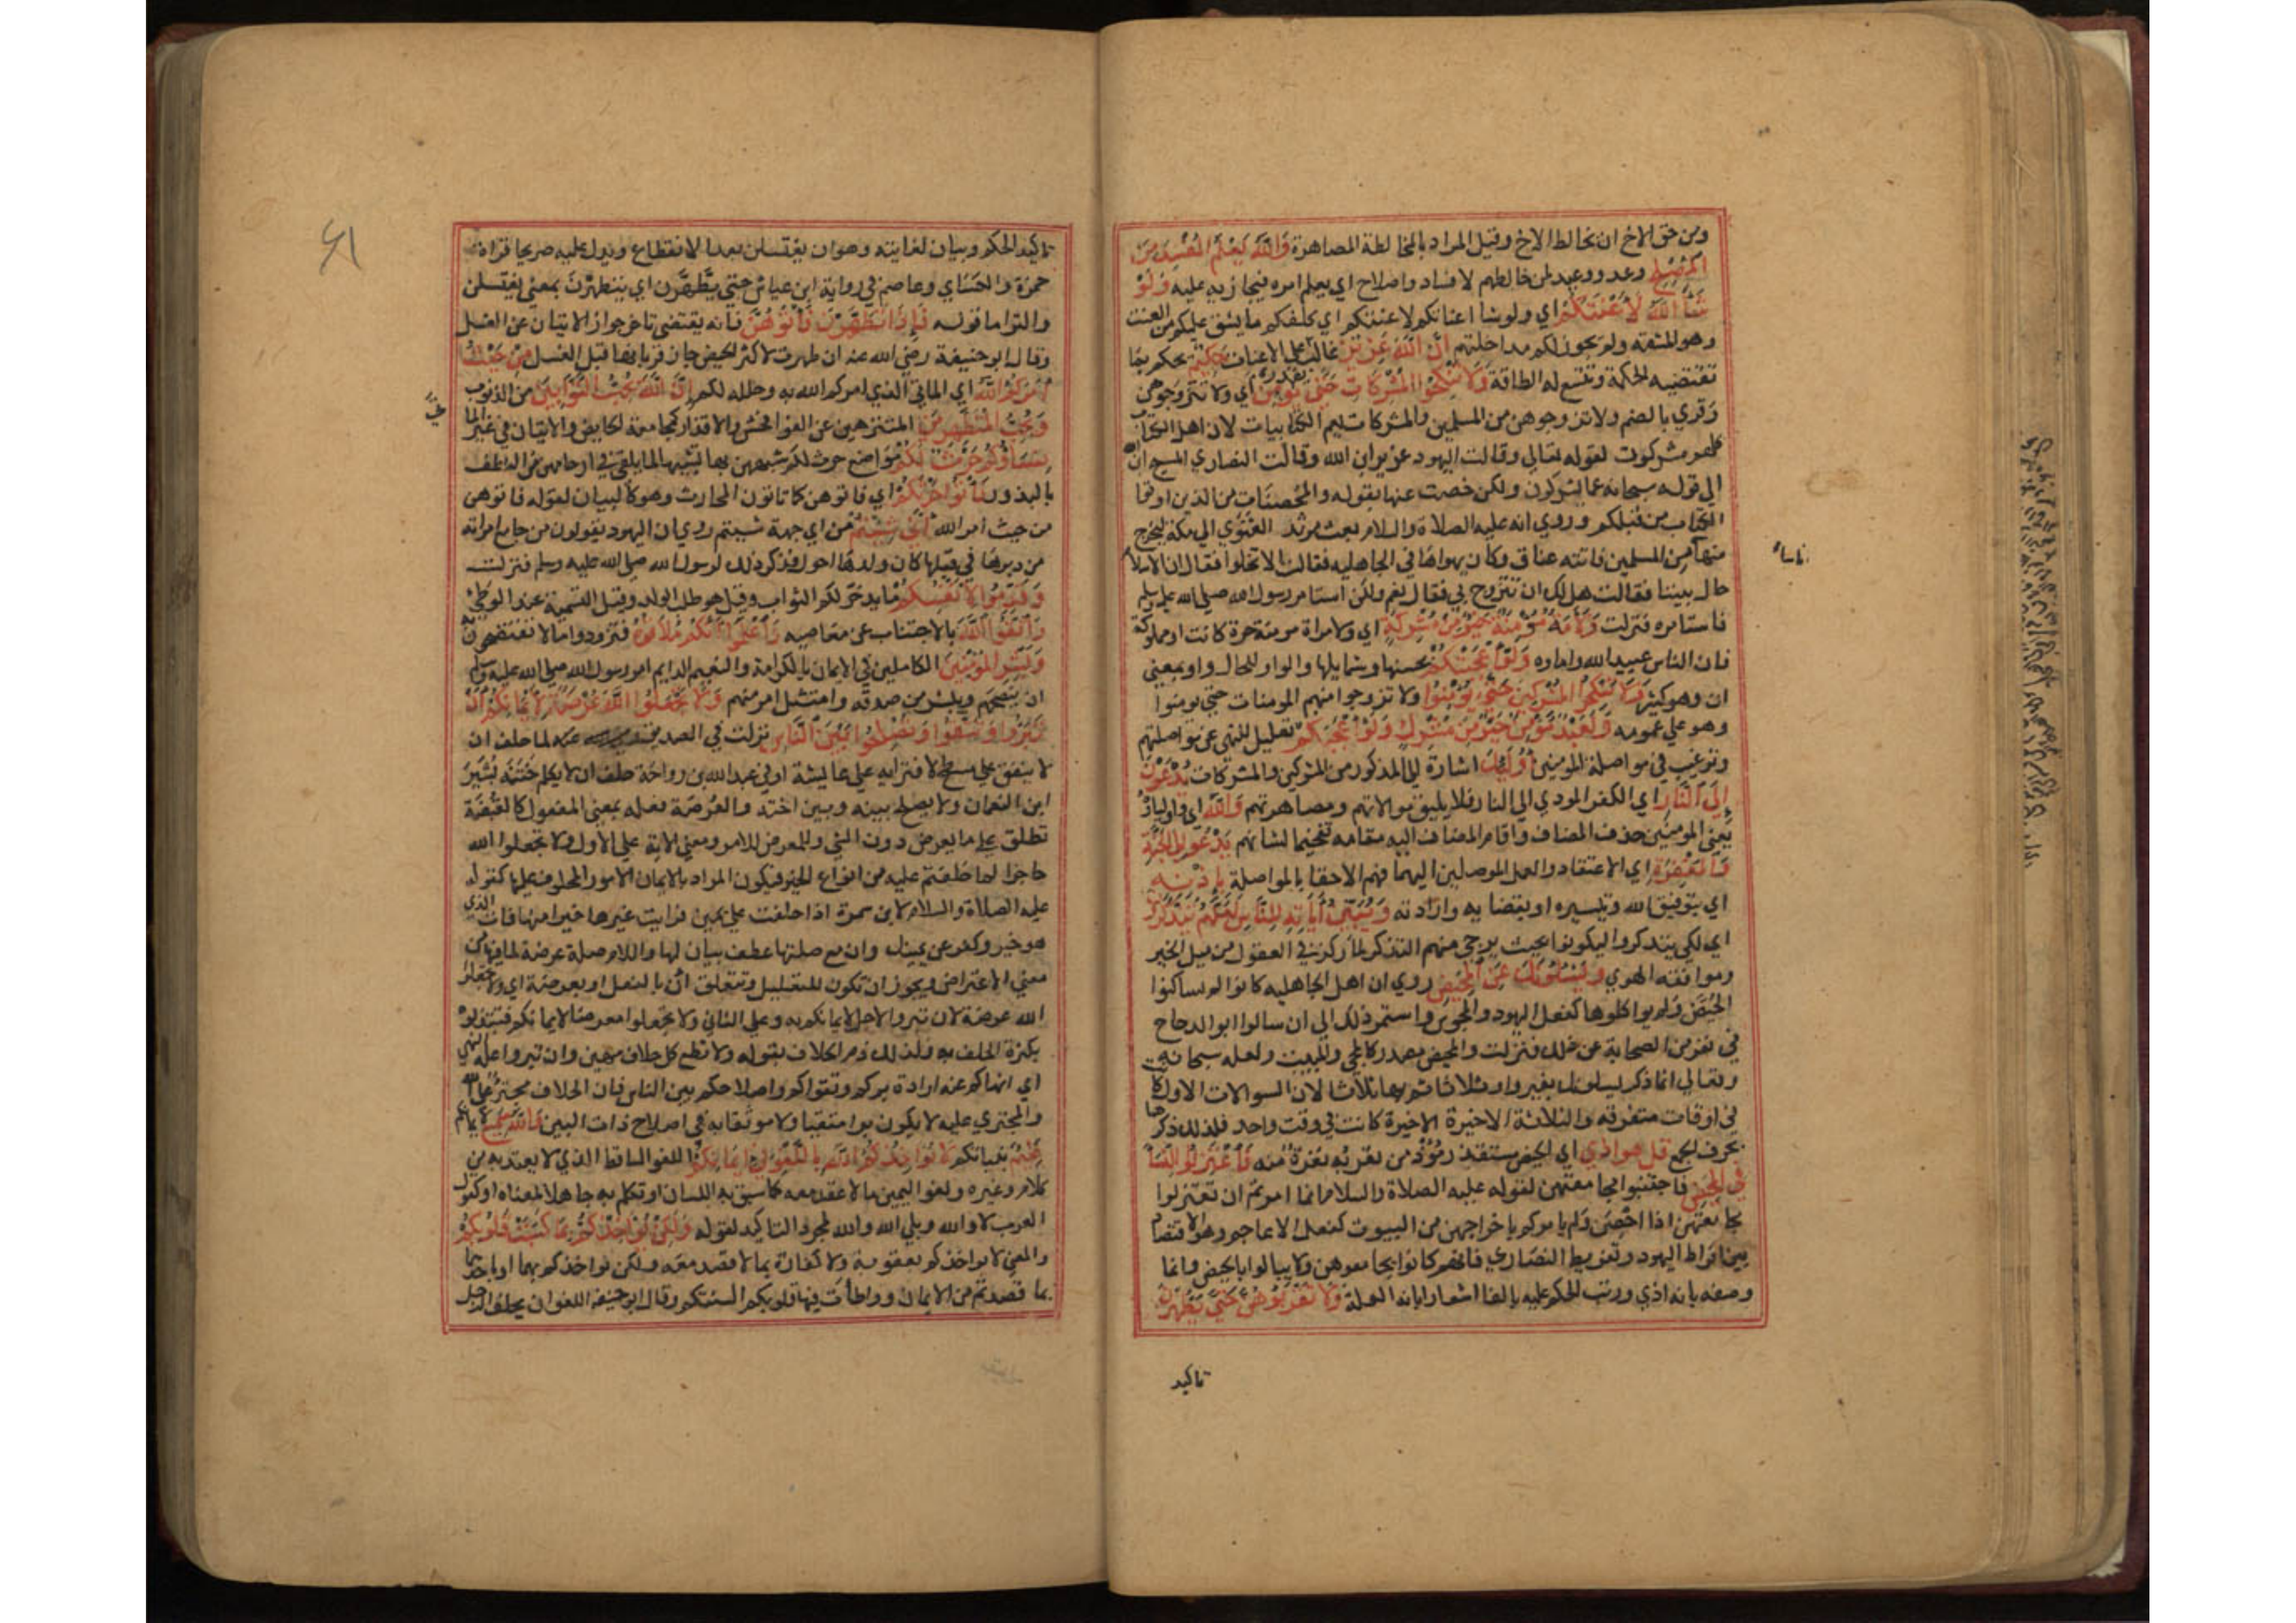 ومن حق الاخ ان يخالط الاخ وقيل المراد بالمخالطة المصاهرة وَاللَّهُ يَعْلَمُ المُفْسِدَ مِنَ
المُصْلِحِ وعد ووعيد لمن خالطهم لافساد واصلاح اي يعلم امره فيجازيه عليه وَلَوْ
شَاَ اللَّهُ لَاَعْنَتَكُمْ اي ولو شا اعناتكم لاعنتكم اي كلفكم ما يشق عليكم من العنت
وهو المشقه ولم يجوز لكم مداخلتهم اِنَّ اللَّهَ عَزِيزٌ غالب على الاعنات حَكِيمٌ يحكم بما
تقتضيه الحكمة وتتسع له الطاقة وَلَا تَنْكِحُوا المُشْرِكَاتِ حَتَّى يُؤْمِنَّ اي ولا تتزوجوهن
وقري بالضم ولا تزوجوهن من المسلمين والمشركات يعم الكتابيات لان اهل الكتاب
مشركون لقوله تعالي وقالت اليهود عزير ابن الله وقالت النصاري المسيح ابن الله
الي قوله سبحانه عما يشركون ولكن خصت عنها بقوله والمُحصنَات من الذين اوتوا
الكتاب من قبلكم وروي انه عليه الصلاة والسلام بعث مرثد الغنَوي الي مكة ليخرج
منها من المسلمين فاتته عناق وكان يهواها في الجاهليه فقالت الا تخلوا فقال ان الاسلام
حال بيننا فقالت هل لك ان تتزوج بي فقال نعم ولكن استامر رسول الله صلى الله عليه وسلم
فاستامره فنزلت وَلَاَمَةٌ مُؤْمِنَةٌ خَيْرٌ مِنْ مُشْرِكَةٍ اي ولامراة مومنة حرة كانت او مملوكة
فان الناس عبيد الله واماوه وَلَوْ اَعْجَبَتْكُمْ بحسنها وشمايلها والواو للحال ولو بمعني
ان وهو كثير وَلَا تُنْكِحُوا المُشْرِكِينَ حَتَّى يُؤْمِنُوا ولا تزوجوا منهم المومنات حتي يومنوا
وهو علي عمومه وَلَعَبْدٌ مُؤْمِنٌ خَيْرٌ مِنْ مُشْرِكٍ وَلَوْ اَعْجَبَكُمْ تعليل للنهي عن مواصلتهم
وترغيب في مواصلة المومنين اُولَئِكَ اشارة الي المذكورمن المشركين والمشركات يَدْعُونَ
اِلَى النَّارِ اي الكفر المودي الي النار فلا يليق موالاتهم ومصاهرتهم وَاللَّهُ اي واولياوه
يعني المومنين حذف المضاف واقام المضاف اليه مقامه تفخيما لشانهم يَدْعُو اِلَى الجَنَّةِ
وَالمَغْفِرَةِ اي الاعتقاد والعمل الموصلين اليهما فهم الاحقا بالمواصلة بِاِذْنِهِ
اي بتوفيق الله وتيسيره او بقضايه وارادته وَيُبَيِّنُ اَيَاتِهِ لِلنَّاسِ لَعَلَّهُمْ يَتَذَكَّرُونَ
اي لكي يتذكروا وليكونوا بحيث يرجي منهم التذكر لما ركز في العقول من ميل الخير
ومخالفه الهوي وَيَسْئَلُونَكَ عَنِ المَحِيضِ روي ان اهل الجاهليه كانوا لم يساكنوا
الحُيَّض ولم يواكلوها كفعل اليهود والمجوس واستمر ذلك الي ان سال ابو الدحداح
في نفر من الصحابة عن ذلك فنزلت والمحيض مصدر كالمجي والمبيت ولعله سبحانه
وتعالي انما ذكر يسالونك بغير واو ثلاثا ثم بها ثلاثا لان السوالات الاول كانت
في اوقات متفرقه والثلاثة الاخيرة كانت في وقت واحد فلذلك ذكرها
بحرف الجمع قُلْ هُوَ اَذًى اي الحيض مستقذر موذ من يقربه نفرة منه فَاعْتَزِلُوا النِّسَاَ
فِي المَحِيضِ فاجتنبوا مجامعتهن لقوله عليه الصلاة والسلام انما امرتم ان تعتزلوا
مجامعتهن اذا احضن ولم يامركم باخراجهن من البيوت كفعل الاعاجم وهو الاقتصاد
بين افراط اليهود وتفريط النصاري فانهم كانوا يجامعوهن ولا يبالوا بالحيض وانما
وصفه بانه اذي ورتب الحكم عليه بالفا اشعارا بانه العلة وَلَا تَقْرَبُوهُنَّ حَتَّى يَطْهُرْنَ
تاكيد
تاكيد الحكم وبيان لغايته وهو ان يغتسلن بعد الانقطاع ويدل عليه صريحا قراة
حمزة والكسَاي وعاصم في رواية ابن عياش حتي يَطَّهَّرن اي يتطهَّرن بمعني يغتسلن
والتزاما قوله فَاِذَا تَطَهَّرْنَ فَاْتُوهُنَّ فانه يقتضي تاخر جواز الاتيان عن الغسل
وقال ابو حنيفة رضي الله عنه ان طهرت لاكثر الحيض جاز قربانها قبل الغسل مِنْ حَيْثُ
اَمَرَكُمُ اللَّهُ اي الماتي الذي امركم الله به وحلله لكم اِنَّ اللَّهَ يُحِبُّ التَّوَّابِينَ من الذنوب
وَيُحِبُّ المُتَطَهِّرِينَ المتنزهين عن الفواحش والاقذار كمجامعة الحايض والاتيان في غير الماتي
نِسَاؤُكُمْ حَرْثٌ لَكُمْ مواضع حرث لكم شبههن بها تشبيها لما يلقي في ارحامهن من النطف
بالبذور فَاْتُوا حَرْثَكُمْ اي فاتوهن كما تاتون المحارث وهو كالبيان لقوله فاتوهن
من حيث امر الله اَنَّى شِئْتُمْ من اي جهة شيتم روي ان اليهود يقولون من جامع امراته
من دبرها في قبلها كان ولدها احول فذكر ذلك لرسول الله صلى الله عليه وسلم فنزلت
وَقَدِّمُوا لِاَنْفُسِكُمْ ما يدخر لكم الثواب وقيل هو طلب الولد وقيل التسمية عند الوطي
وَاتَّقُوا اللَّهَ بالاجتناب عن معاصيه وَاعْلَمُوا اَنَّكُمْ مُلَاقُوهُ فتزودوا ما لا تفتضحون به
وَبَشِّرِ المُؤْمِنِينَ الكاملين في الايمان بالكرامة والنعيم الدايم امر رسول الله صلى الله عليه وسلم
ان ينصحهم ويبشر من صدقه وامتثل امره منهم وَلَا تَجْعَلُوا اللَّهَ عُرْضَةً لِاَيْمَانِكُمْ اَنْ
تَبَرُّوا وَتَتَّقُوا وَتُصْلِحُوا بَيْنَ النَّاسِ نزلت في الصديق عنه لما حلف ان
لا ينفق علي مسطح لافترايه علي عايشة او في عبد الله بن رواحة حلف ان لا يكلم ختنه بُشَيْرَ
ابن النعمان ولا يصلح بينه وبين اخته والعُرضة فعله بمعني المفعول كالقُبضة
تطلق على ما يعرض دون الشي وللمعرض للامر ومعني الاية علي الاول ولا تجعلوا الله
حاجزا لما حلفتم عليه من انواع الخير فيكون المراد بالايمان الامور المحلوف عليها كقوله
عليه الصلاة والسلام لابن سمرة اذا حلفت علي يمين فرايت غيرها خيرا منها فات الذي
هو خير وكفر عن يمينك وان مع صلتها عطف بيان لها واللام صلة عرضة لما فيها من
معني الاعتراض ويجوز ان تكون للتعليل وتتعلق ان بالفعل او بعرضة اي ولا تجعلوا
الله عرضة لان تبروا لاجل ايمانكم به وعلي الثاني ولا تجعلوا معرضا لايمانكم فتبتذلوه
بكثرة الحلف به ولذلك ذم الحلاف بقوله ولا تطع كل حلاف مهين وان تبروا علة النهي
اي انهاكم عنه ارادة بركم وتقواكم واصلاحكم بين الناس فان الحلاف مجترئ على الله
والمجتري عليه لا يكون برا متقيا ولا موثقا به في اصلاح ذات البين وَاللَّهُ سَمِيعٌ لايمانكم
عَلِيمٌ بنياتكم لَا يُؤَاخِذُكُمُ اللَّهُ بِاللَّغْوِ فِي اَيْمَانِكُمْ اللغو الساقط الذي لا يعتد به من
كلام وغيره ولغو اليمين ما لا عقد معه كما سبق به اللسان او تكلم به جاهلا لمعناه كقول
العرب لا والله وبلي الله والله لمجرد التاكيد لقوله وَلَكِنْ يُؤَاخِذُكُمْ بِمَا كَسَبَتْ قُلُوبُكُمْ
والمعني لا يواخذكم بعقوبة ولا كفارة بما لا قصد معه ولكن يواخذكم بهما او باحدهما
بما قصدتم من الايمان وواطأت فيها قلوبكم السنتكم وقال ابو حنيفة اللغو ان يحلف الرجل